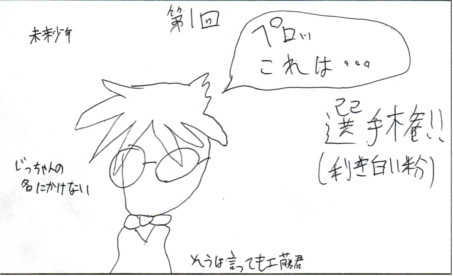 第1回
未来少年
ペロッ
これは・・・
選手権!!
(利き白い粉)
じっちゃんの
名にかけない
そうは言っても工藤君